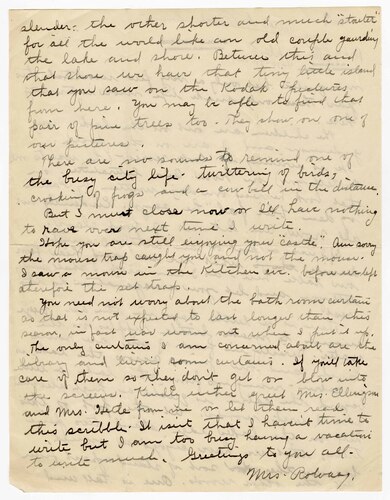 slender: the other shorter and much "stouter
for all the world like an old couple guarding
the lake and shore. Between this and
that shore we have that tiny little island
that you saw on the Kodak pictures
from here. You may be able to find that
pair of pine trees too. They show on one of
our pictures.
There are no sounds to remind one of
the busy city life - twittering of birds,
croaking of frogs and a cow bell in the distance.
But I must close now or I'll have nothing
to rave over next time I write.
Hope you are still enjoying your "castle". Am sorry
the mouse trap caught you and not the mouse.
I saw a mouse in the kitchen eve. before we left
therefore the set trap.
You need not worry about the bath room curtain
as that is not expected to last longer than this
season, in fact was worn out when I put it up.
The only curtains I am concerned about are the
library and living room curtains. If you'll take
care of them so they don't get or blow into
the screens. Kindly either greet Mrs. Ellingson
and Mrs. from me or let them read
this scribble. It isn't that I haven't time to
write but I am too busy having a vacation
to write much. Greetings to you all -
Mrs Rolvaag.